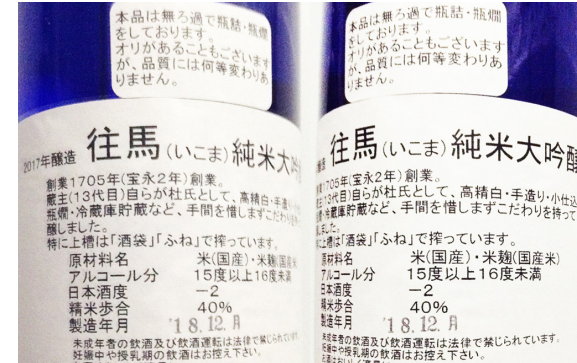 本品は無ろ過で瓶詰・瓶燗
をしております。
オリがあることもございます
が、品質には何等変わりあ
りません。
2017年醸造 往馬(いこま)純米大吟
創業1705年(宝永2年)創業。
蔵主(13代目)自らが杜氏として、高精白・手造り・小仕込
瓶燗・冷蔵庫貯蔵など、手間を惜しまずこだわりを持って
醸しました。
特に上槽は「酒袋」「ふね」で搾っています。
原材料名 米(国産)・米麹(国産米
アルコール分 15度以上16度未満
日本酒度 −2
精米歩合 40%
製造年月 '18.12.月
未成年者の飲酒及び飲酒運転は法律で禁じられています
妊娠中や授乳期の飲酒はお控え下さい。
本品は無ろ過で瓶詰・瓶燗
をしております。
オリがあることもございます
が、品質には何等変わりあ
りません。
醸造 往馬(いこま)純米大吟醸
創業1705年(宝永2年)創業。
蔵主(13代目)自らが杜氏として、高精白・手造り・小仕込
瓶燗・冷蔵庫貯蔵など、手間を惜しまずこだわりを持って
醸しました。
特に上槽は「酒袋」「ふね」で搾っています。
原材料名 米(国産)・米麹(国産米
アルコール分 15度以上16度未満
日本酒度 −2
精米歩合 40%
製造年月 '18.12.月
未成年者の飲酒及び飲酒運転は法律で禁じられています
妊娠中や授乳期の飲酒はお控え下さい。